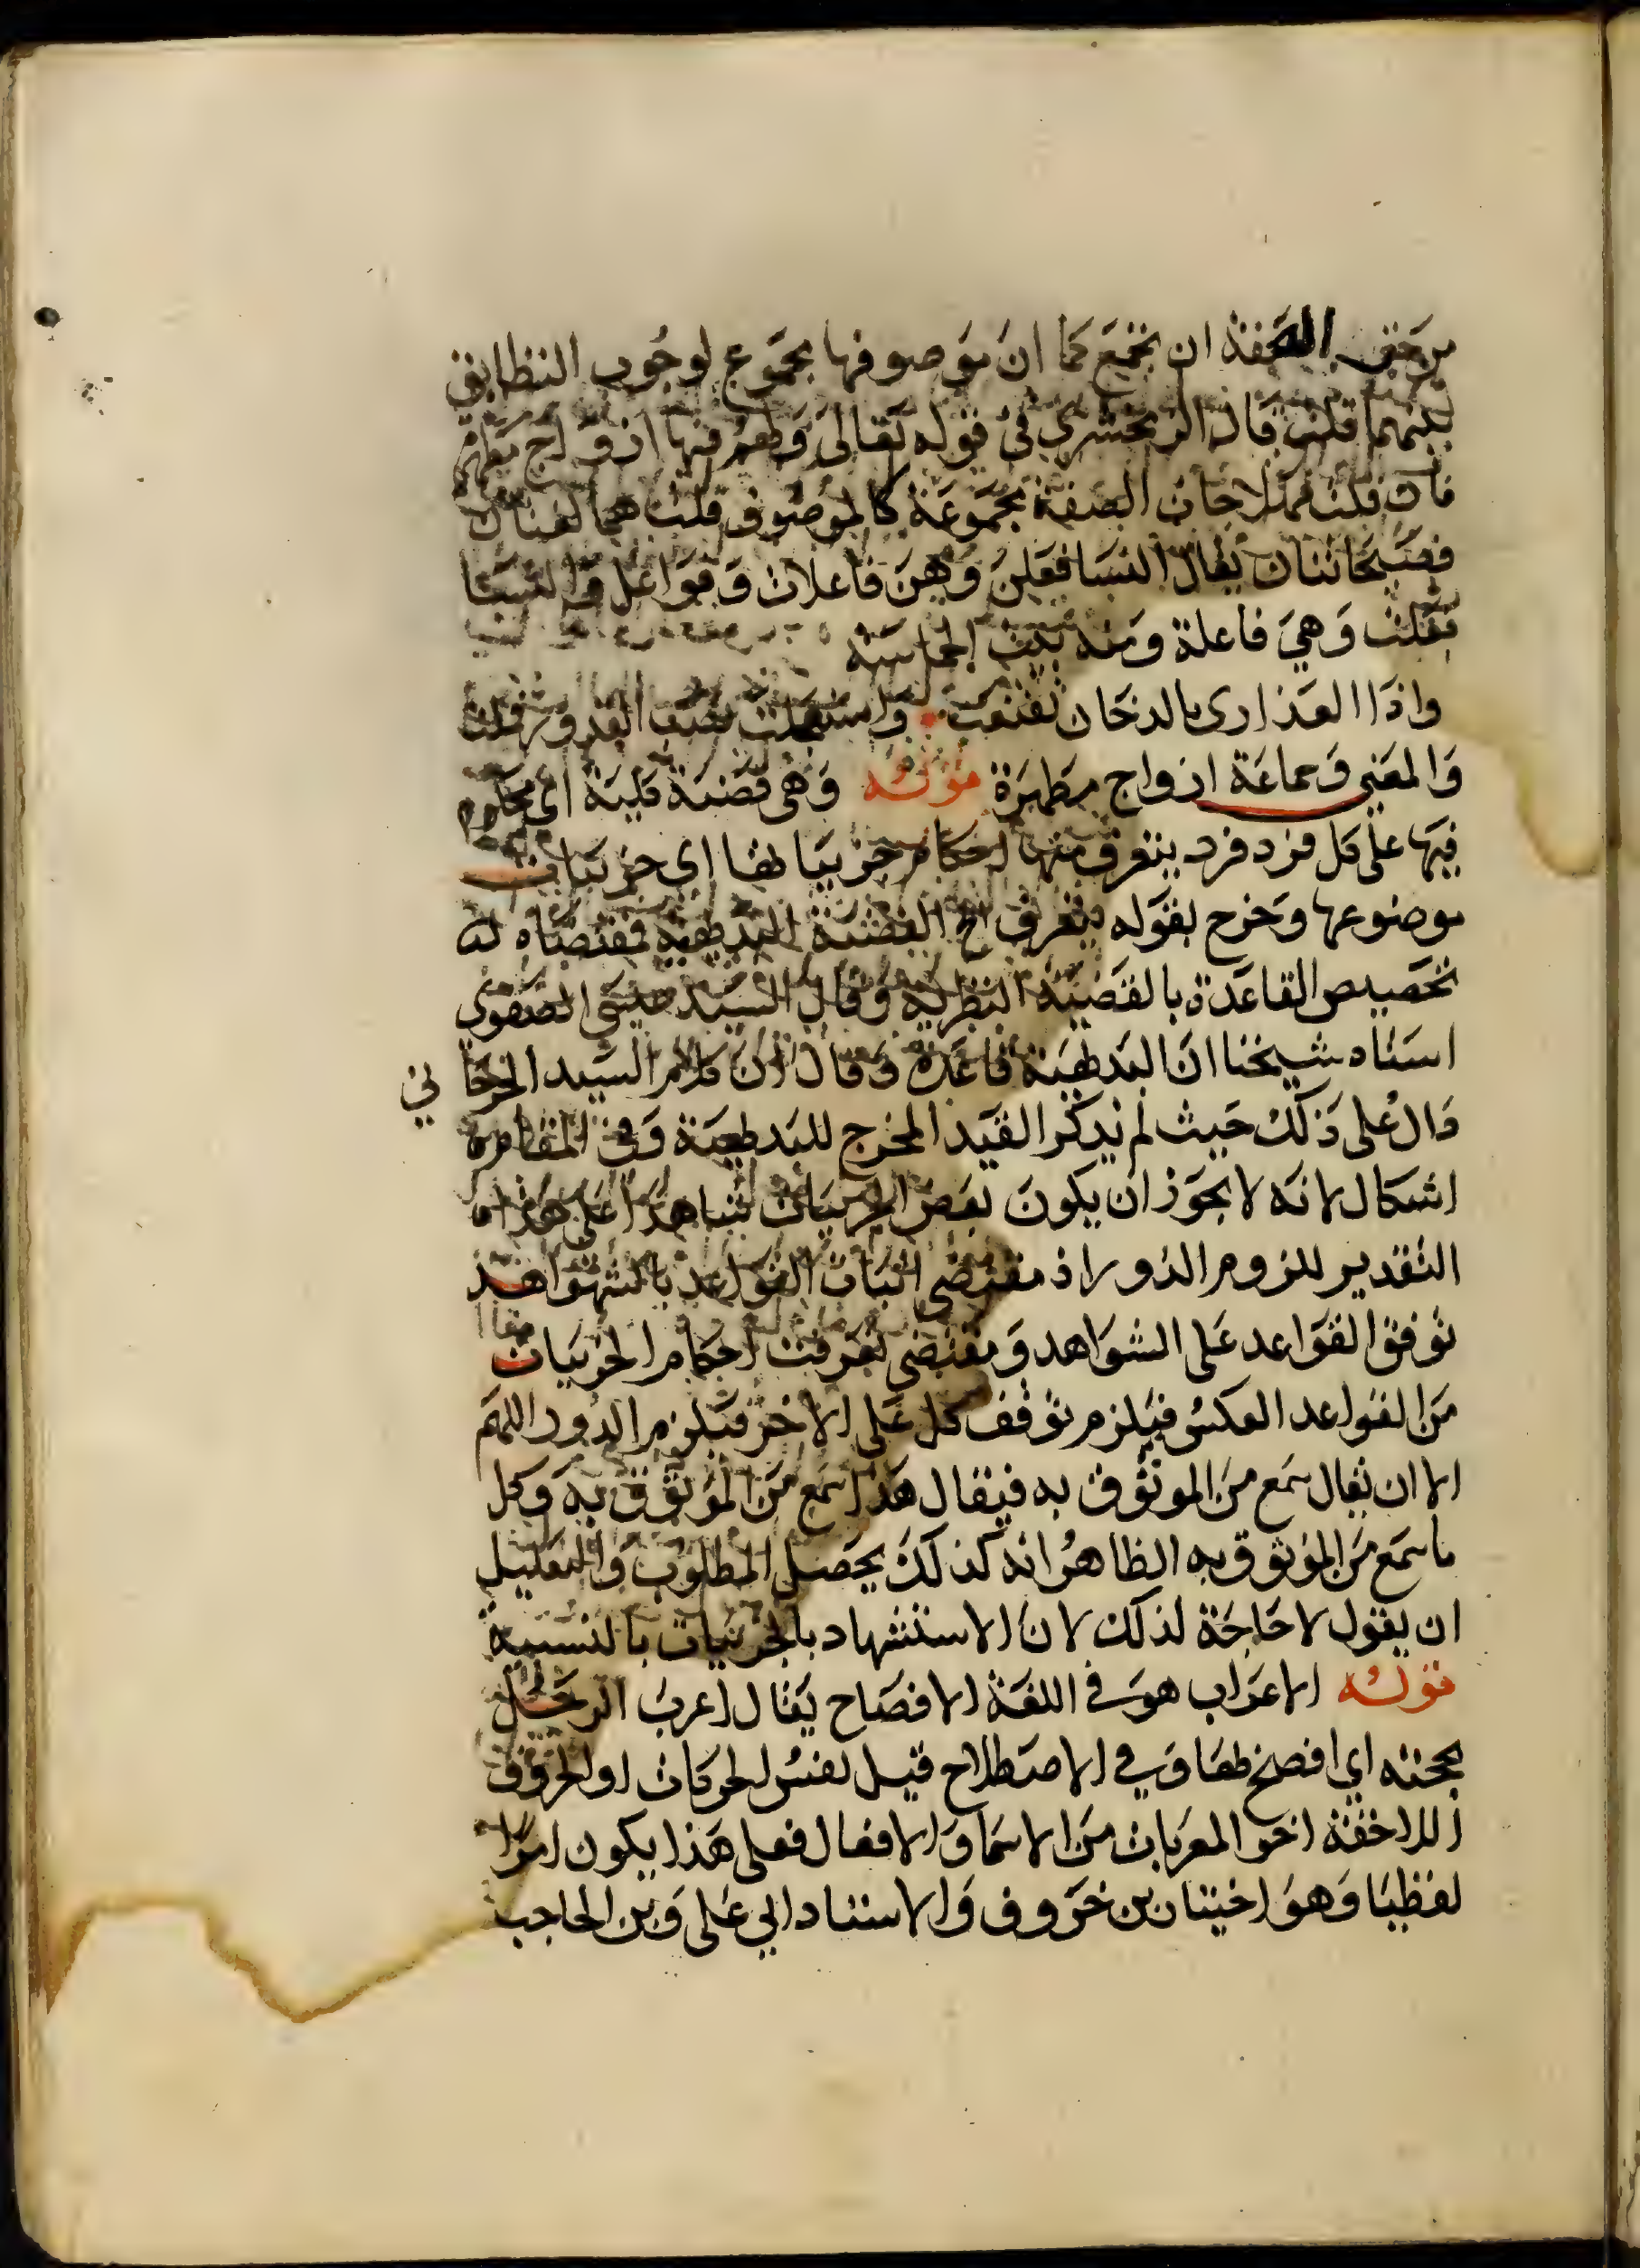 من حق الصفة ان تجمع كما ان موصوفها مجموع لوجوب التطابق
بينهما قلت قال الزمخشري في قوله تعالى ولهم فيها ازواج مطهرة
فان قلت فهلا جات الصفة مجموعة كالموصوف قلت هما لغتان
فصيحتان يقال النسا فعلن وهن فاعلات وفواعل والنسا
فعلت وهي فاعلة ومنه بيت الحماسة
واذا العذارى بالدخان تقنعت واستعجلت نصب القدور فملت
والمعنى وجماعة ازواج مطهرة قوله وهي قضية كلية اي محكوم
فيها على كل فرد فرد يتعرف منها احكام جزيياتها اي جزييات
موضوعها وخرج بقوله يتعرف الخ القضية البديهية فمقتضاه
تخصيص القاعدة بالقضية النظرية وقال السيد عيسى الصفوي
استاد شيخنا ان البديهية قاعدة وقال ان كلام السيد الجرجاني
دال على ذلك حيث لم يذكر القيد المخرج للبديهية وفي المقام
اشكال لانه لا يجوز ان يكون بعض الجزييات شاهدا على هذا
التقدير للزوم الدور اذ مقتضى اثبات القواعد بالشواهد
توقف القواعد على الشواهد ومقتضى تعرفت احكام الجزييات
من القواعد العكس فيلزم توقف كل على الاخر فيلزم الدور اللهم
الا ان يقال سمع من الموثوق به فيقال هذا سمع من الموثوق به وكل
ما سمع من الموثوق به الظاهر انه كذلك يحصل المطلوب
ان يقول لا حاجة لذلك لان الاستشهاد بالجزييات بالنسبة
قوله الاعراب هو في اللغة الافصاح يقال اعرب الرجل
بحجته اي افصح بها وفي الاصطلاح قيل نفس الحركات او الحروف
اللاحقة اخر المعربات من الاسما والافعال فعلى هذا يكون امرا
لفظيا وهو اختيار بن خروف والاستاد ابي على وبن الحاجب